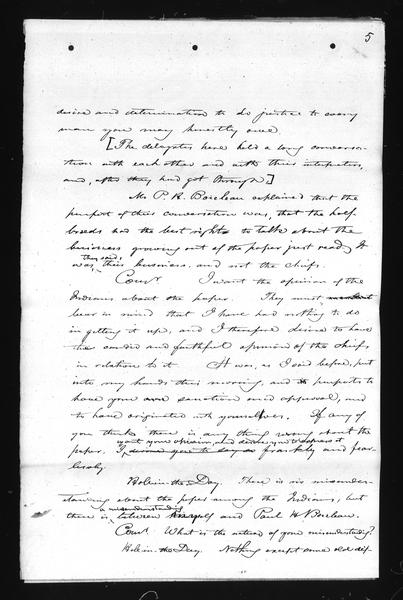 5
desire and determination to do justice to every
man you may honestly owe.
[The delegates here held a long conversa-
tion with each other and with their interpreters,
and, after they had got through,]
Mr P. H. Beaulieau explained that the
purport of this conversation was, that the half-
breeds had the best right to talk about the
business growing out of the paper just read. It
was, they said, their business, and not the chiefs.
Comr. I want the opinion of the
Indians about the paper. They must
bear in mind that I have had nothing to do
in getting it up, and I therefore desire to have
the candid and faithful opinion of the chiefs
in relation to it. It was, as I said before, put
into my hands this morning, and it purports to
have your own sanction and approval, and
to have originated with yourselves. If any of
you think there is any thing wrong about the
want your opinion, and desire you to express it
paper. I desire you to say so frankly and fear-
lessly.
Hole-in-the-Day. There is no misunder-
standing about the paper among the Indians; but
a misunderstanding
there is between myself and Paul H. Beaulieau.
Comr. What is the nature of your misunderstanding?
Hole-in-the-Day. Nothing except some old dif-